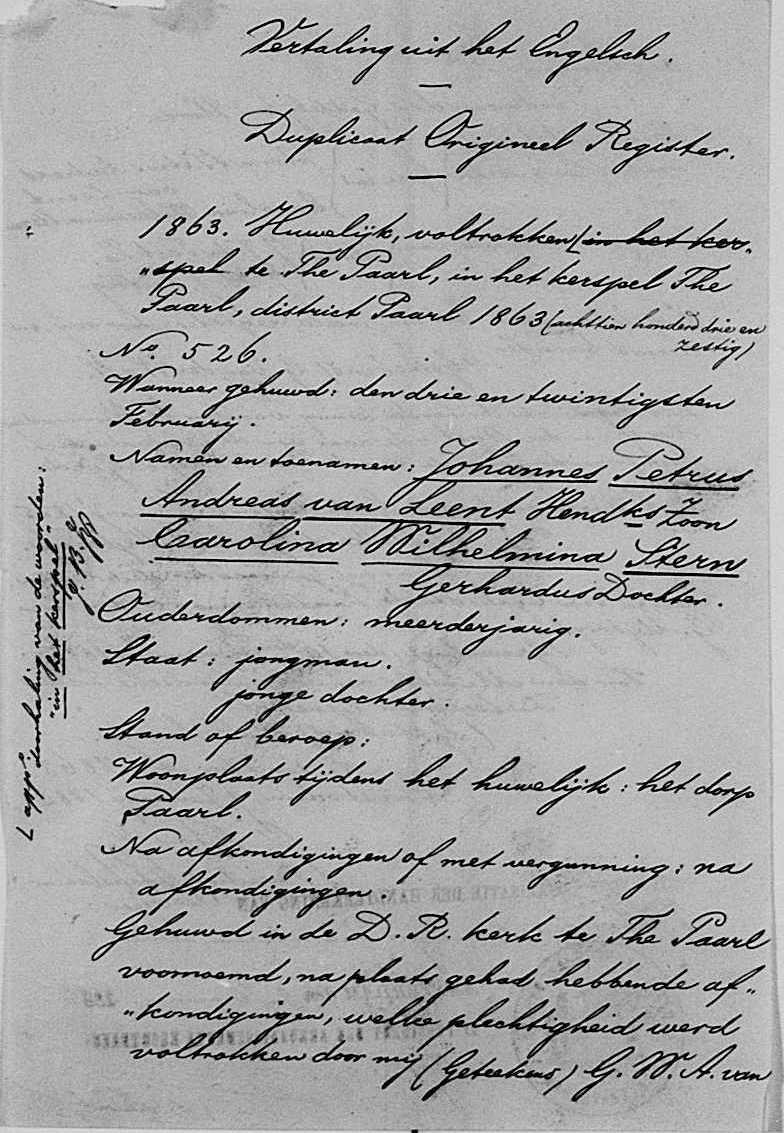 Vertaling uit het Engelsch.
Duplicaat Origineel Register.
1863. Huwelijk, voltrokken [in het ker„
„spel te The Paarl, in het kerspel The
Paarl, district Paarl 1863 (achttien honderd drie en
zestig)
No. 526.
Wanneer gehuwd: den drie en twintigsten
Februarij.
Namen en toenamen: Johannes Petrus
Andreas van Leent Hendks Zoon
Carolina Wilhelmina Stern
Gerhardus Dochter.
Ouderdommen: meerderjarig.
Staat: jongman.
jonge dochter.
Stand of beroep:
Woonplaats tijdens het huwelijk: het dorp
Paarl.
Na afkondigingen of met vergunning: na
afkondigingen
Gehuwd in de D. R. kerk te The Paarl
voornoemd, na plaats gehad hebbende af„
„kondigingen, welke plechtigheid werd
voltrokken door mij (Geteekend) G. W. A. van
doorhaling van de woorden:
"in het kerspel"